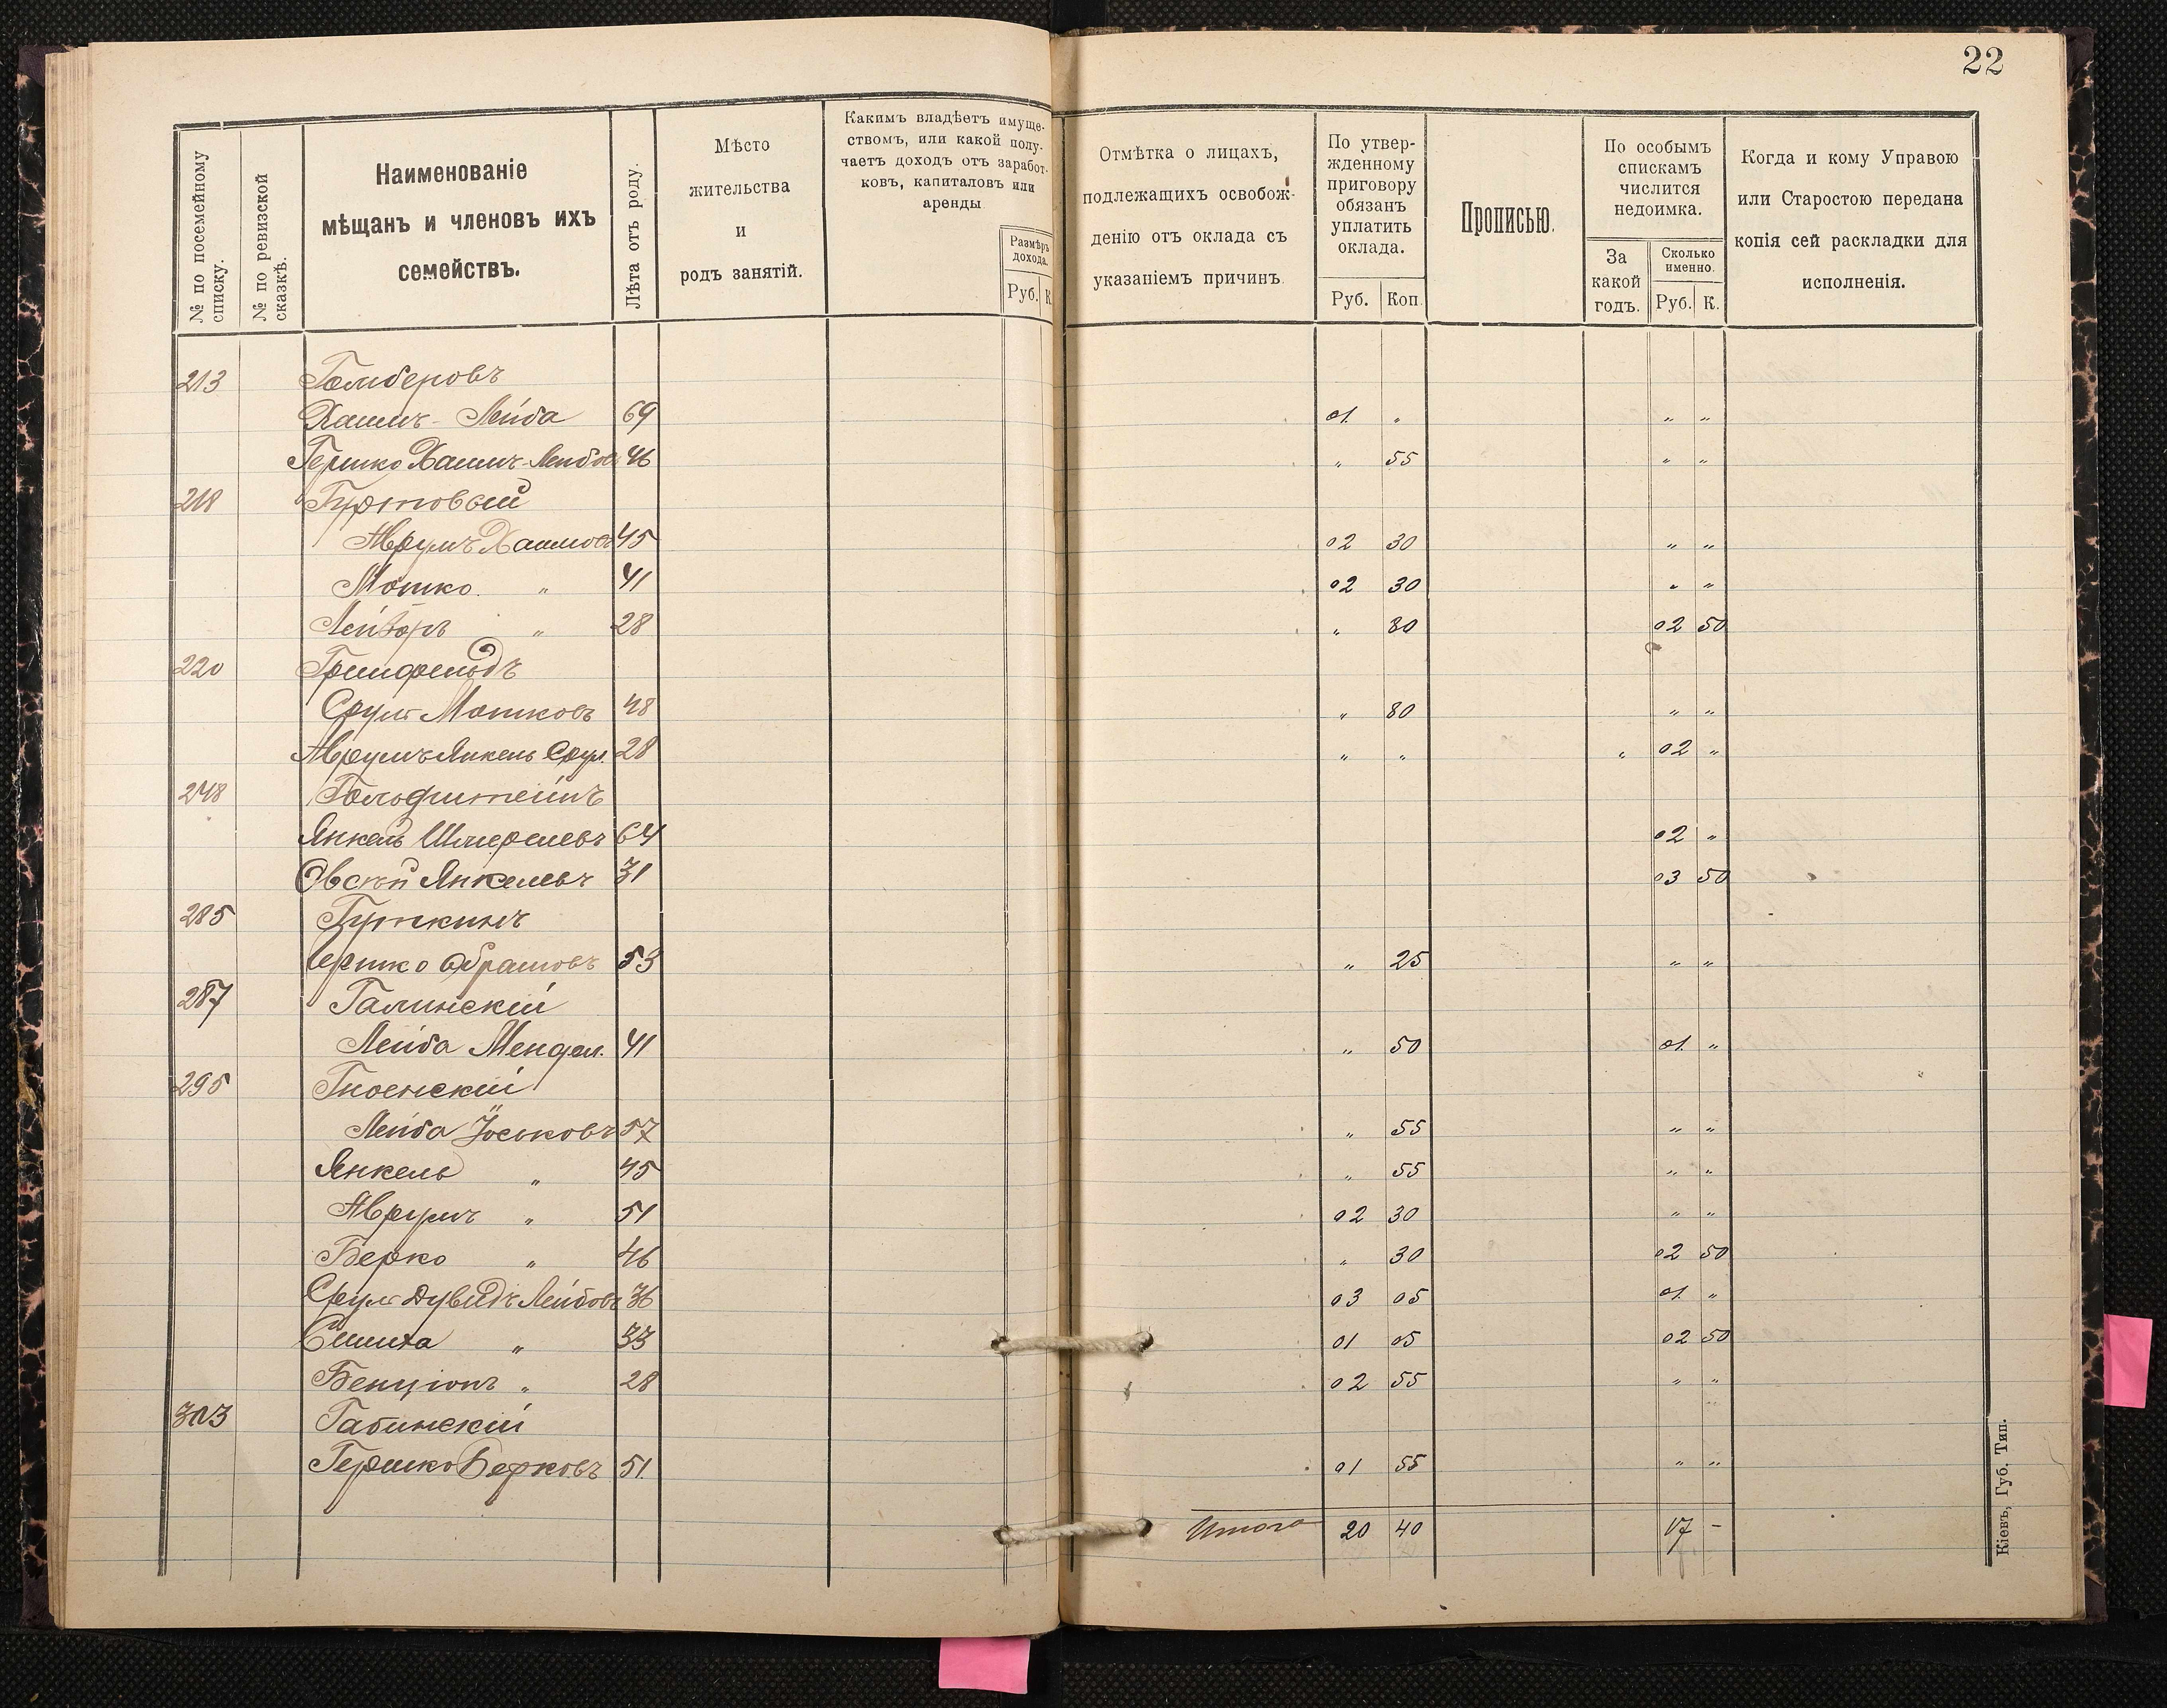 22
№ по посемейному списку.
№ по ревизской сказкѣ.
Наименованіе
мѣщанъ и членовъ ихъ
семействъ.
Лѣта отъ роду.
Мѣсто
жительства
и
родъ занятій.
Какимъ владѣетъ имуще-
ствомъ, или какой полу-
чаетъ доходъ отъ заработ-
ковъ, капиталовъ или
аренды
Размѣръ
дохода.
Руб. К
Отмѣтка о лицахъ,
подлежащихъ освобож-
денію отъ оклада съ
указаніемъ причинъ.
По утвер-
жденному
приговору
обязанъ
уплатить
оклада.
Руб. Коп.
Прописью.
По особымъ
спискамъ
числится
недоимка.
За
какой
годъ.
Сколько
именно.
Руб. К.
Когда и кому Управою
или Старостою передана
копія сей раскладки для
исполненія.
213 Гомберовъ
Хаимъ-Лейба 69 01. " " "
Гершко Хаимъ-Лейбов 46 " 55 " "
218 Гуртовой
Аврумъ Хаимовъ 45 02 30 " "
Мотко " 41 02 30 " "
Лейзоръ " 28 " 80 02 50
220 Гринфельдъ
Сруль Мотковъ 48 " 80 " "
Аврумъ Янкель Срул. 28 " " " 02 "
248 Гольдштейнъ
Янкель Шмерелевъ 64 02 "
Овсей Янкелевъ 31 03 50
285 Гуткинъ
Ицко Абрамовъ 53 " 25 " "
287 Галинскій
Лейба Мендел. 41 " 50 01. "
295 Гноенскій
Лейба Іоськовъ 57 " 55 " "
Янкель " 45 " 55 " "
Аврумъ " 51 02 30 " "
Берко " 46 " 30 02 50
Сруль Дувидъ Лейбовъ 36 03 05 01. "
Симха " 33 01 05 02 50
Бенціонъ " 28 02 55 " "
303 Габинскій
Гершко Берковъ 51 01 55 " "
Итого 20 40 17 -
Кіевъ, Губ. Тип.